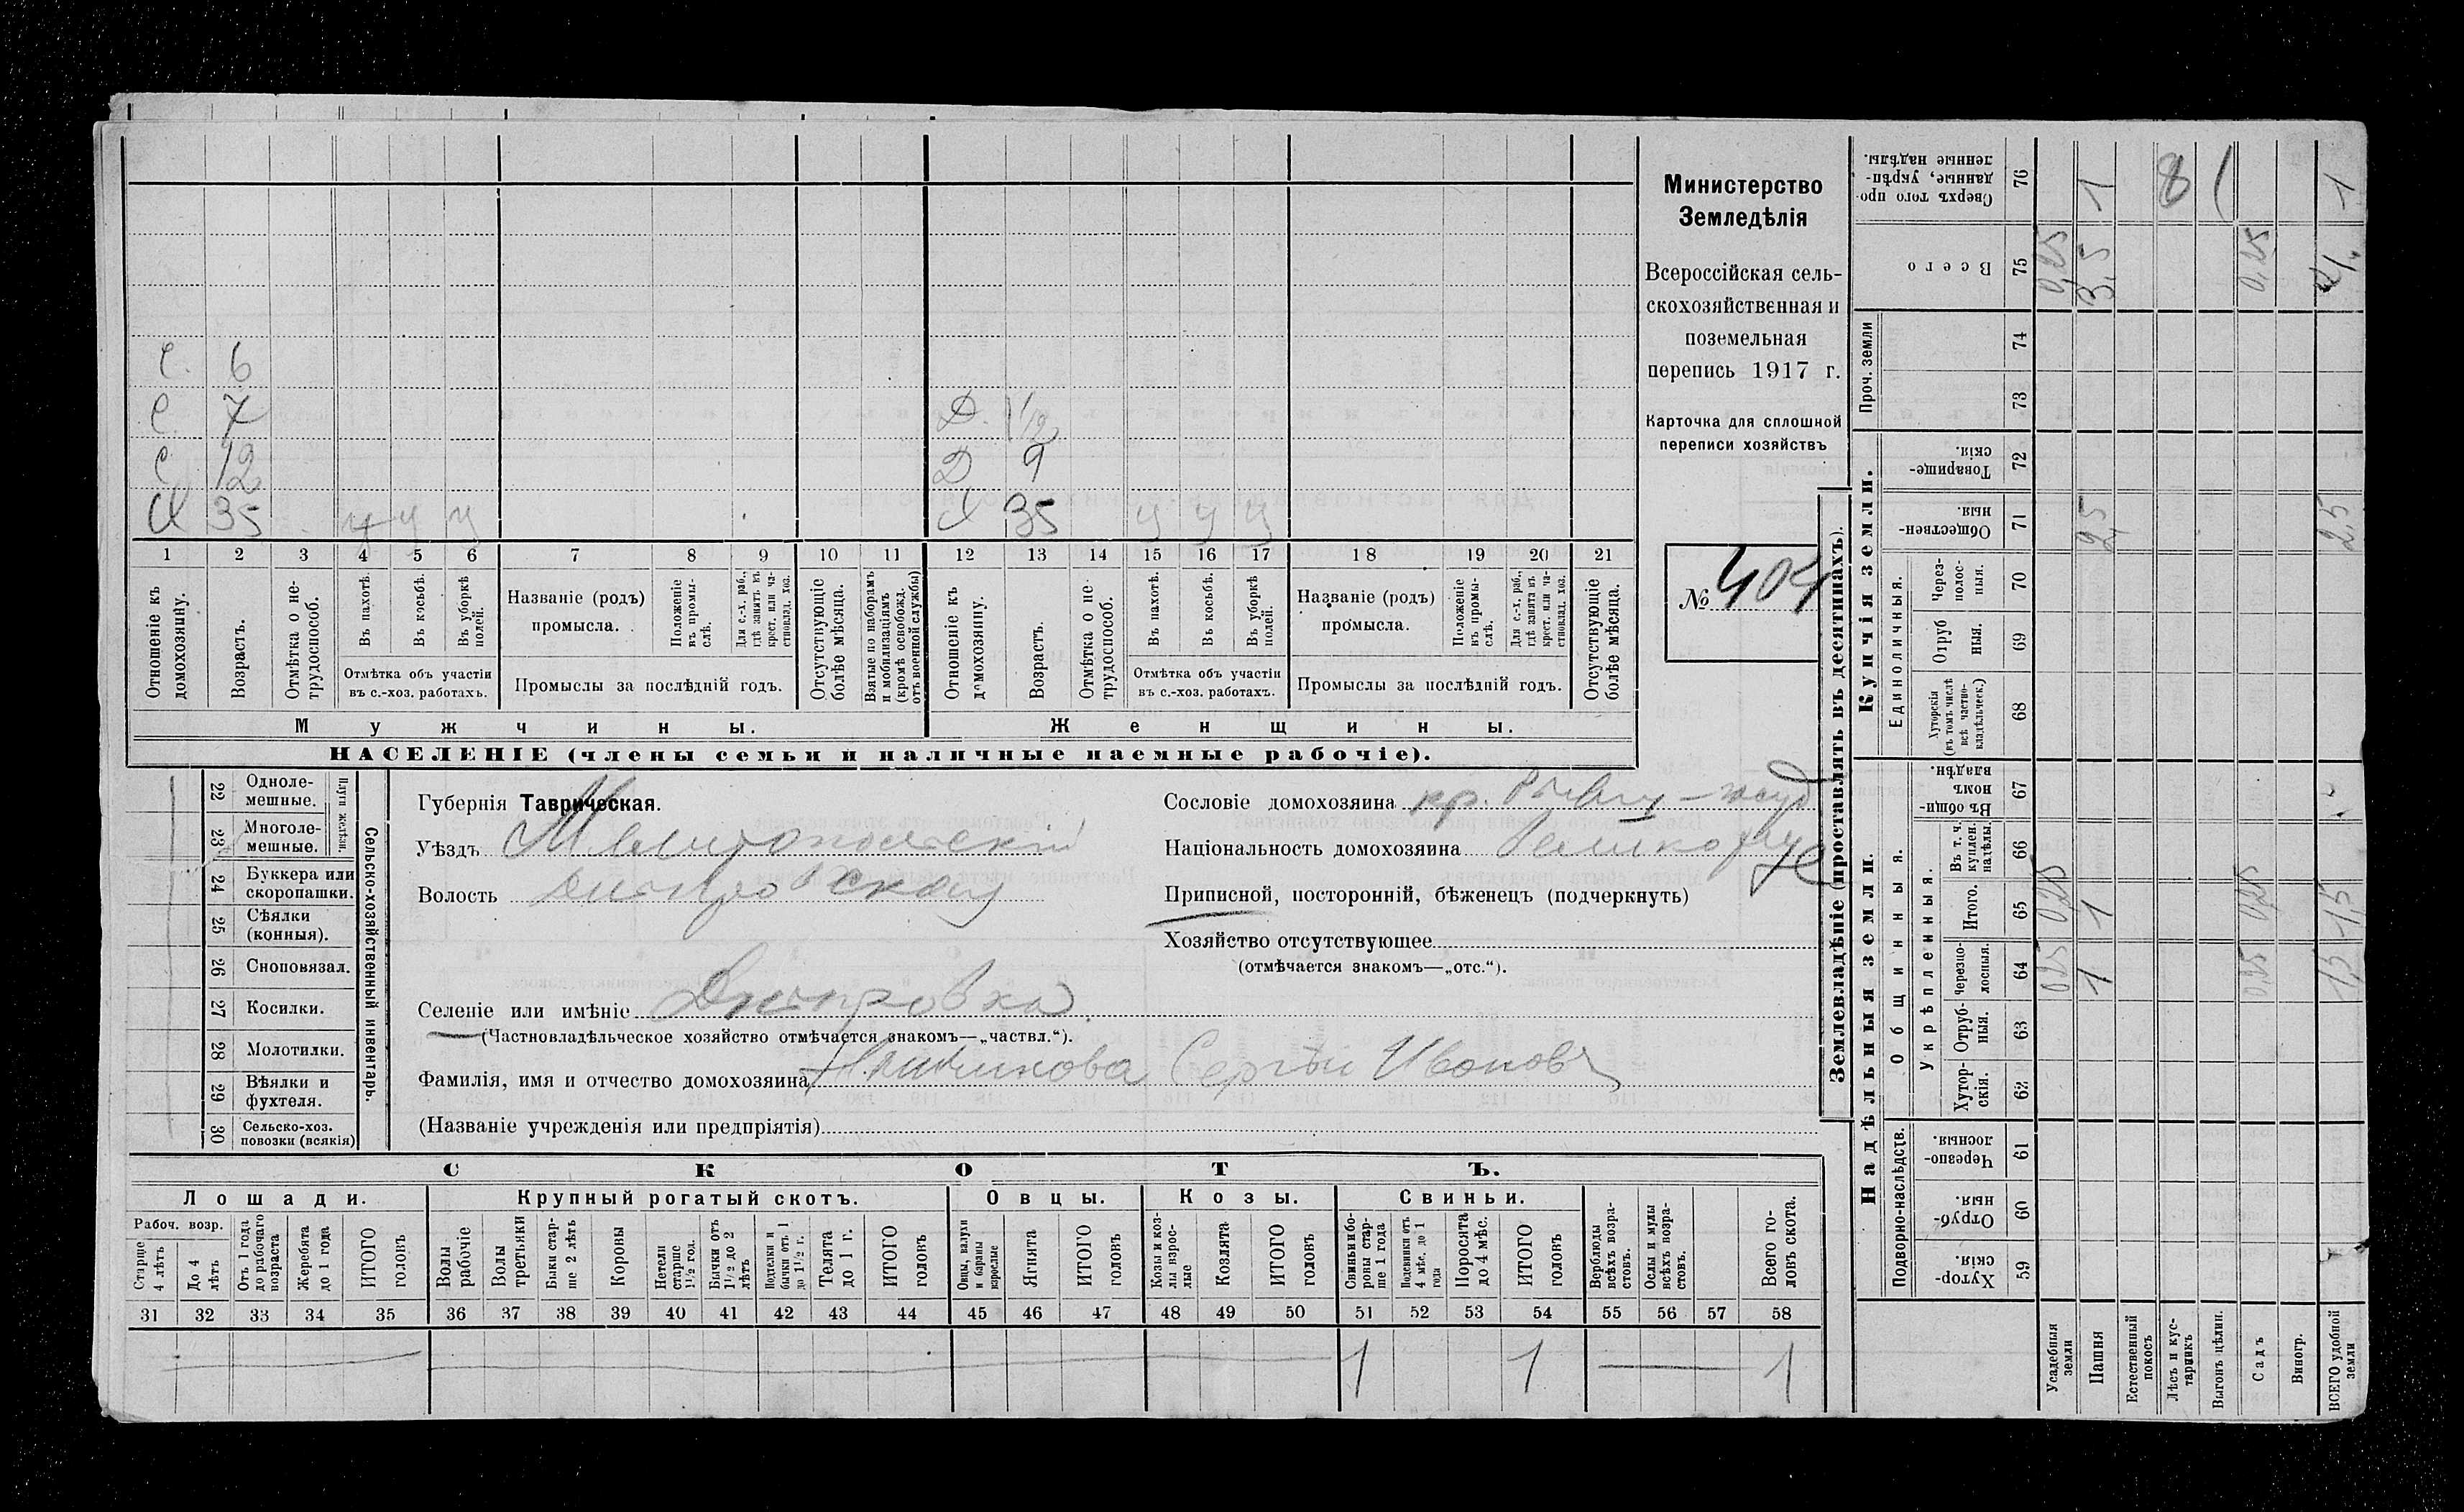 С. 6
С. 7 Д. 1/12
С. 12 Д 9
Х 35 у у у Х 35 у у у
1 2 3 4 5 6 7 8 9 10 11 12 13 14 15 16 17 18 19 20 21
Отношеніе къ домохозяину.
Возрастъ.
Отмѣтка о не-
трудоспособ.
Въ пахотѣ.
Въ косьбѣ.
Въ уборкѣ полей.
Отмѣтка объ участіи
въ с.-хоз. работахъ.
Названіе (родъ)
промысла.
Положеніе
въ промы-
слѣ.
Для с.-х. раб.,
гдѣ занятъ въ
крест. или ча-
стновлад. хоз.
Промыслы за послѣдній годъ.
Отсутствующіе
болѣе мѣсяца.
Взятые по наборамъ
и мобилизаціямъ
(кромѣ освобожд.
отъ военной службы)
Отношеніе къ
домохозяину.
Возрастъ.
Отмѣтка о не-
трудоспособ.
Въ пахотѣ.
Въ косьбѣ.
Въ уборкѣ
полей.
Отмѣтка объ участіи
въ с.-хоз. работахъ.
Названіе (родъ)
промысла.
Положеніе
въ промы-
слѣ.
Для с.-х. раб.,
гдѣ занята въ
крест. или ча-
стновлад. хоз.
Промыслы за послѣдній годъ.
Отсутствующіе
болѣе мѣсяца.
Мужчины. Женщины.
НАСЕЛЕНІЕ (члены семьи и наличные наемные рабочіе).
Министерство
Земледѣлія
Всероссійская сель-
скохозяйственная и
поземельная
перепись 1917 г.
Карточка для сплошной
переписи хозяйствъ
№ 404
22 Одноле-
мешные.
23 Многоле-
мешные.
Плуги желѣзн.
24 Буккера или
скоропашки.
25 Сѣялки
(конныя).
26 Сноповязал.
27 Косилки.
28 Молотилки.
29 Вѣялки и
фухтеля.
30 Сельско-хоз.
повозки (всякія)
Сельско-хозяйственный инвентарь.
Губернія Таврическая.
Уѣздъ Мелитопольскій
Волость Днѣпровская
Селеніе или имѣніе Днѣпровка
(Частновладѣльческое хозяйство отмѣчается знакомъ—„частвл.“).
Фамилія, имя и отчество домохозяина Сергѣй Ивановъ
(Названіе учрежденія или предпріятія)
Сословіе домохозяина кр.
Національность домохозяина
Приписной, посторонній, бѣженецъ (подчеркнуть)
Хозяйство отсутствующее
(отмѣчается знакомъ—„отс.“).
СКОТЪ.
Лошади. Крупный рогатый скотъ. Овцы. Козы. Свиньи.
Рабоч. возр.
Старше
4 лѣтъ
До 4
лѣтъ
Отъ 1 года
до рабочаго
возраста
Жеребята
до 1 года
ИТОГО
головъ
Волы
рабочіе
Волы
третьяки
Быки стар-
ше 2 лѣтъ
Коровы
Нетели
старше
1½ год.
Бычки отъ
1½ до 2
лѣтъ
Подтелки и
бычки отъ 1
до 1½ г.
Телята
до 1 г.
ИТОГО
головъ
Овцы, валухи
и бараны
взрослые
Ягнята
ИТОГО
головъ
Козы и коз-
лы взрос-
лые
Козлята
ИТОГО
головъ
Свиньи и бо-
ровы стар-
ше 1 года
Подсвинки отъ
4 мѣс. до 1
года
Поросята
до 4 мѣс.
ИТОГО
головъ
Верблюды
всѣхъ возра-
стовъ.
Ослы и мулы
всѣхъ возра-
стовъ.
Всего го-
ловъ скота.
31 32 33 34 35 36 37 38 39 40 41 42 43 44 45 46 47 48 49 50 51 52 53 54 55 56 57 58
1 1 1
Землевладѣніе (проставлять въ десятинахъ).
Надѣльныя земли. Купчія земли.
Проч. земли
Подворно-наслѣдств.
Общинныя.
Укрѣпленныя.
Единоличныя.
Сверхъ того про-
данные, укрѣп-
ленные надѣлы.
76 1 8 1
Всего
75 0,25 3,5 0,25 4
74
73
Товарище-
скія.
72
Обществен-
ныя.
71 2,5 2,5
Через-
полос-
ныя.
70
Отруб
ныя.
69
Хуторскія
(въ томъ числѣ
всѣ частно-
владѣльчек.)
68
Въ общин-
номъ
владѣн.
67
Въ т. ч.
куплен.
надѣлы.
66
Итого.
65 0,25 1 0,25 1,5
Черезпо-
лосныя.
64 0,25 1 0,25 1,5
Отруб-
ныя.
63
Хутор-
скія.
62
Черезпо-
лосныя.
61
Отруб-
ныя.
60
Хутор-
скія
59
Усадебныя
земли
Пашня
Естественный
покосъ
Лѣсъ и кус-
тарникъ
Выгонъ цѣлин.
Садъ
Виногр.
ВСЕГО удобной
земли